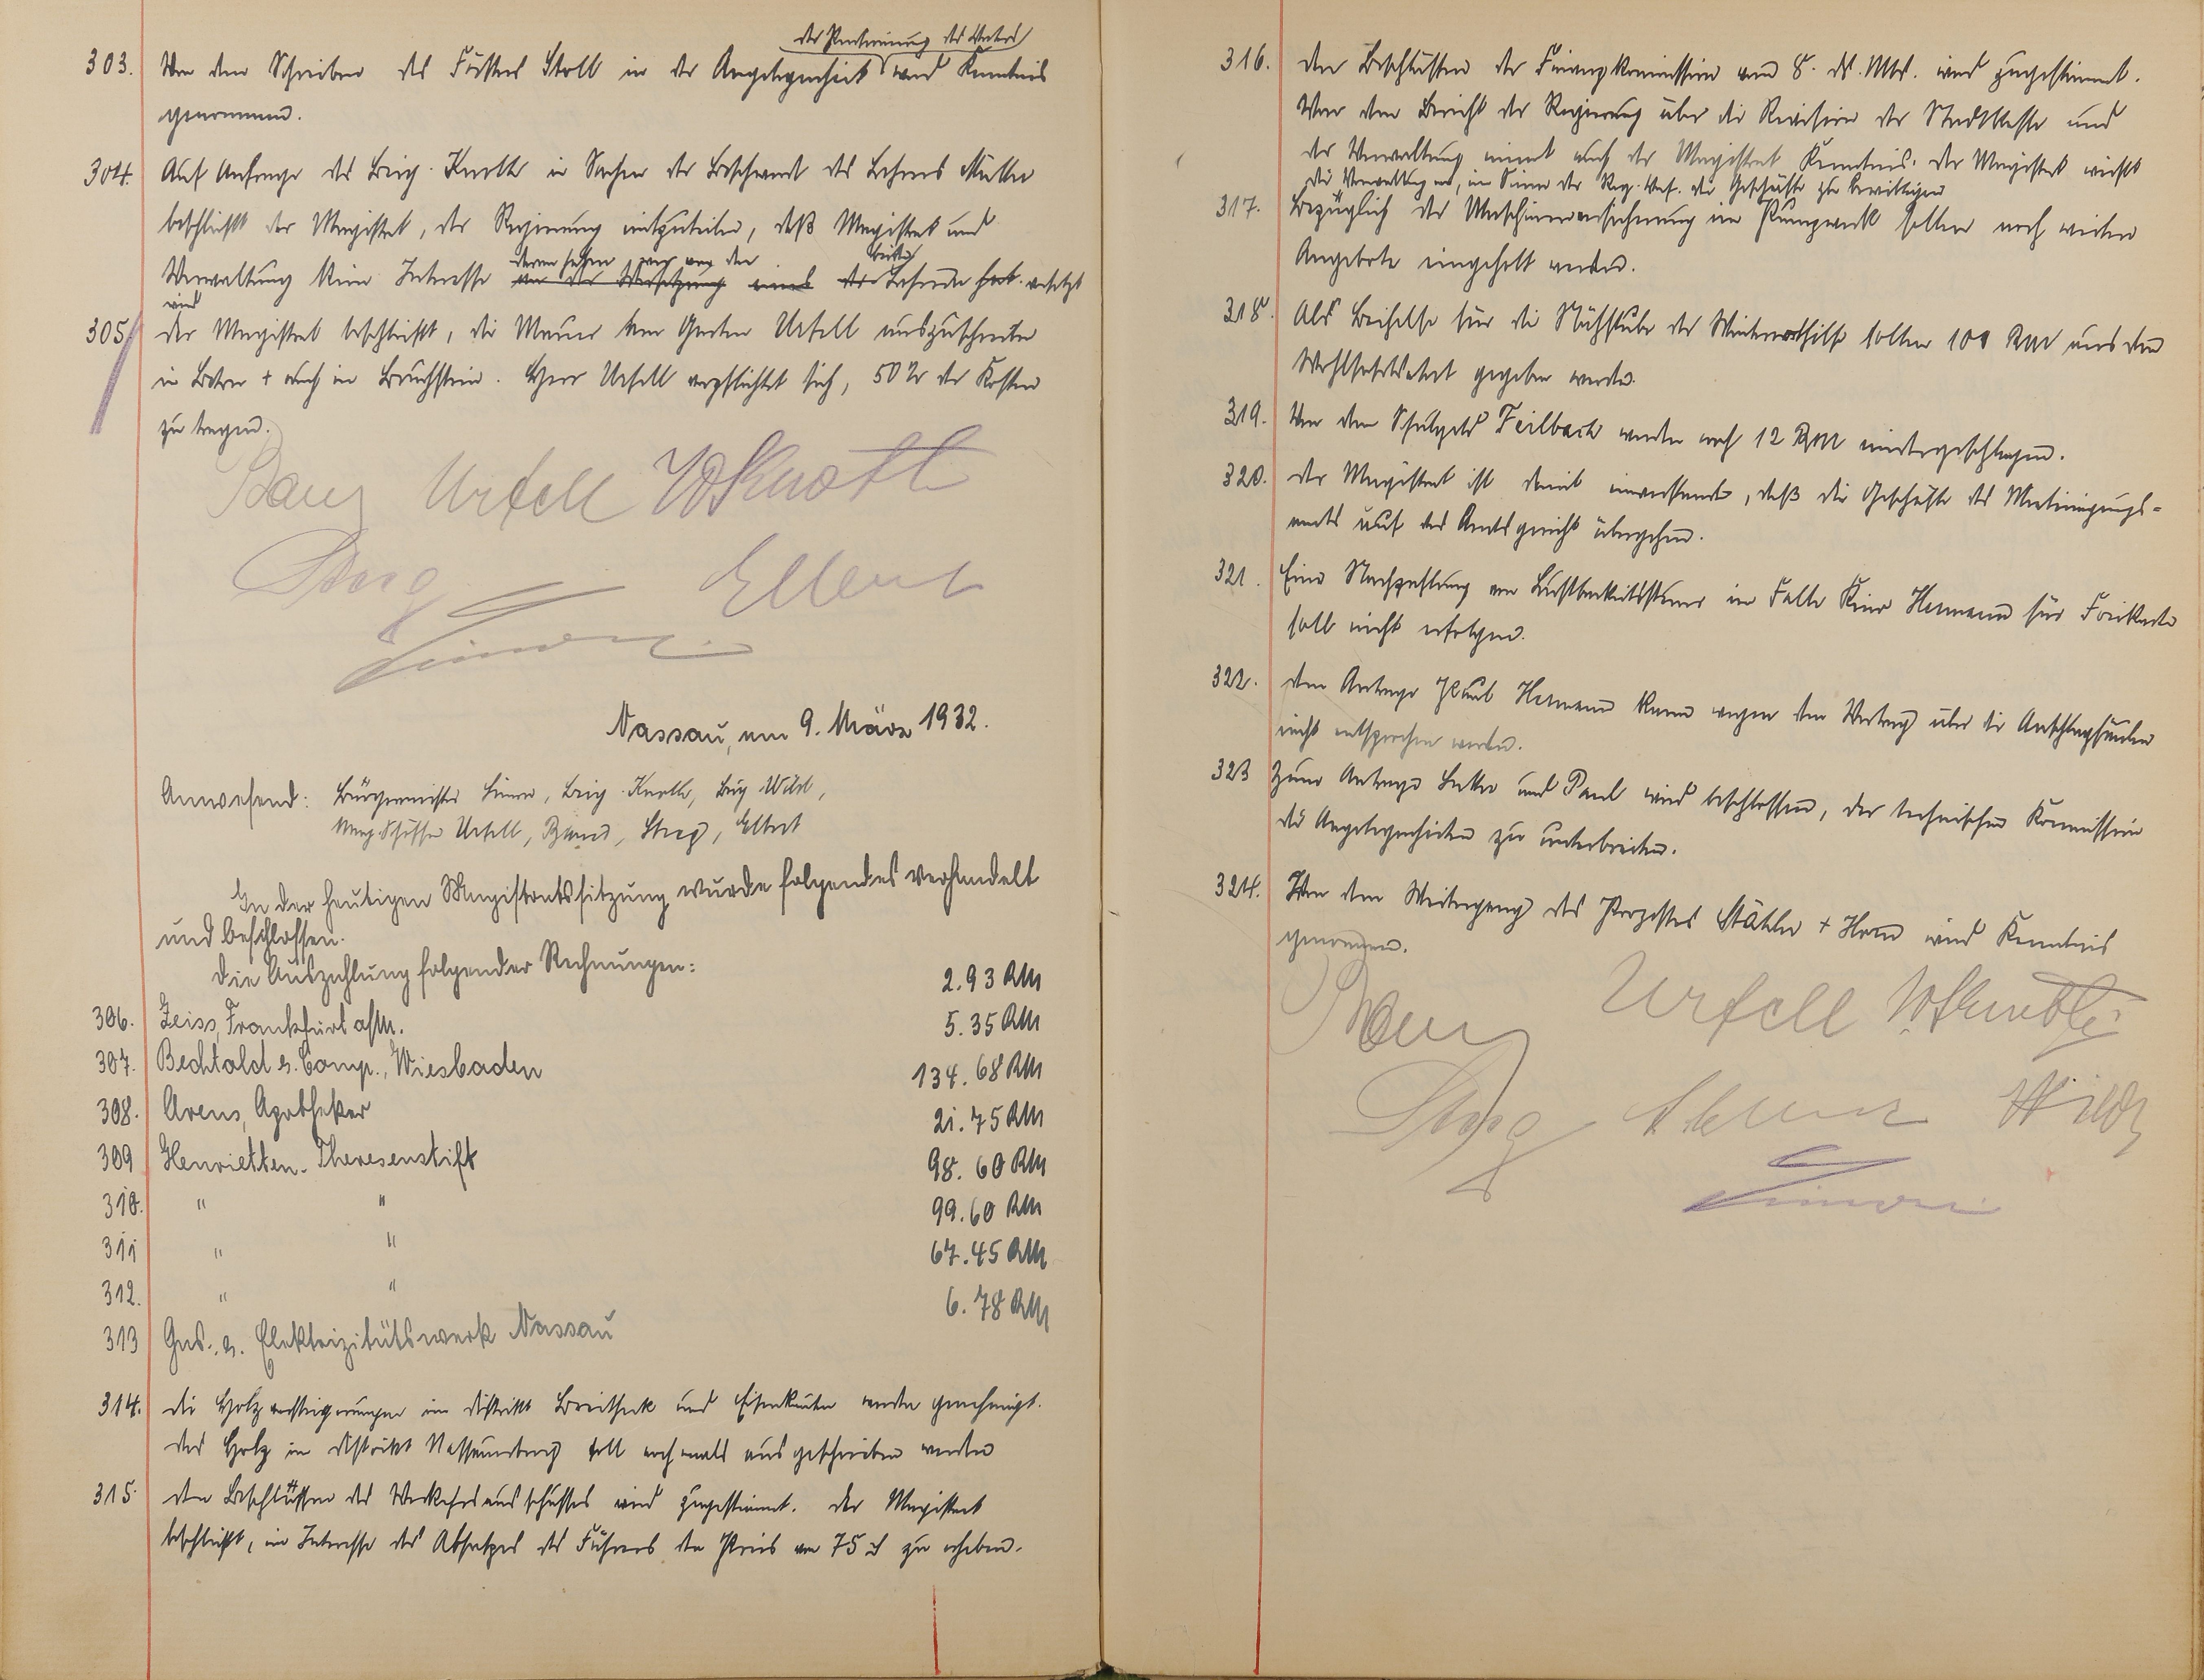 der Pensionierung des Vaters
303. Von dem Schreiben des Försters Stoll in der Angelegenheit wird Kenntnis
genommen.
304. Auf Anfrage des Beig. Knoth in Sachen der Beschwerde des Lehrers Müller
beschließt der Magistrat, der Regierung mitzuteilen, daß Magistrat und
deren sehen wenn von den beiden
Verwaltung kein Interesse an der Versetzung eines der Lehrer hat. versetzt
wird
305. Der Magistrat beschließt, die Mauer am Garten Urfell auszuschreiben
in Beton + auch in Bruchstein. Herr Urfell verpflichtet sich, 50 % der Kosten
zu tragen.
Urfell W Knoth
Elbert
Nassau, am 9. März 1932.
Anwesend: Bürgermeister, Beig. Knoth, Beig. Wild,
Mag. Schöffen Urfell, Elbert
In der heutigen Magistratssitzung wurde folgendes verhandelt
und beschlossen.
Die Auszahlung folgender Rechnungen:
2.93 RM
306. Zeiss, Frankfurt a/M. 5.35 RM
307. Bechtold & Comp., Wiesbaden 134.68 RM
308. Arens, Apotheker 21.75 RM
309 Henrietten-Theresenstift 98.60 RM
310. " " 99.60 RM
311 " " 67.45 RM
312. " " 6.78 RM
313 Gas- u. Elektrizitätswerk Nassau
314. Die Holzversteigerungen im Distrikt Breitheck und Eisenkauten werden genehmigt.
Das Holz im Distrikt Nassauerberg soll nochmals ausgeschrieben werden
315. Den Beschlüssen des Verkehrsausschusses wird zugestimmt. Der Magistrat
beschließt, im Interesse des Absatzes des Führers den Preis von 75 ₰ zu erheben.
316. Den Beschlüssen der Finanzkommission vom 8. ds. Mts. wird zugestimmt.
Von dem Bericht der Regierung über die Revision der Stadtkasse und
der Verwaltung nimmt auch der Magistrat Kenntnis. Der Magistrat weist
die Verwaltung an, im Sinne der Reg. Verf. die Geschäfte zu
317. Bezüglich der Maschinenversicherung im Pumpwerk sollen noch weitere
Angebote eingeholt werden.
318. Als Beihilfe für die Nähstube der Winternothilfe sollen 100 RM aus dem
Wohlfahrtsetat gegeben werden.
319. Von dem Schulgeld Feilbach werden noch 12 RM niedergeschlagen.
320. Der Magistrat ist damit einverstanden, daß die Geschäfte des Mieteinigungs-
amts auf das Amtsgericht übergehen.
321. Eine Nachzahlung von Lustbarkeitssteuer im Falle Kino Hermann für Freikarten
soll nicht erfolgen.
322. Dem Antrage Hermann kann wegen dem Vertrag über die Anschlagsäulen
nicht entsprochen werden.
323 Zum Antrage und Paul wird beschlossen, der technischen Kommission
die Angelegenheiten zu unterbreiten.
324. Von dem Weitergang des Prozesses Stähler + Horn wird Kenntnis
genommen.
Urfell W. Knoth
Wild